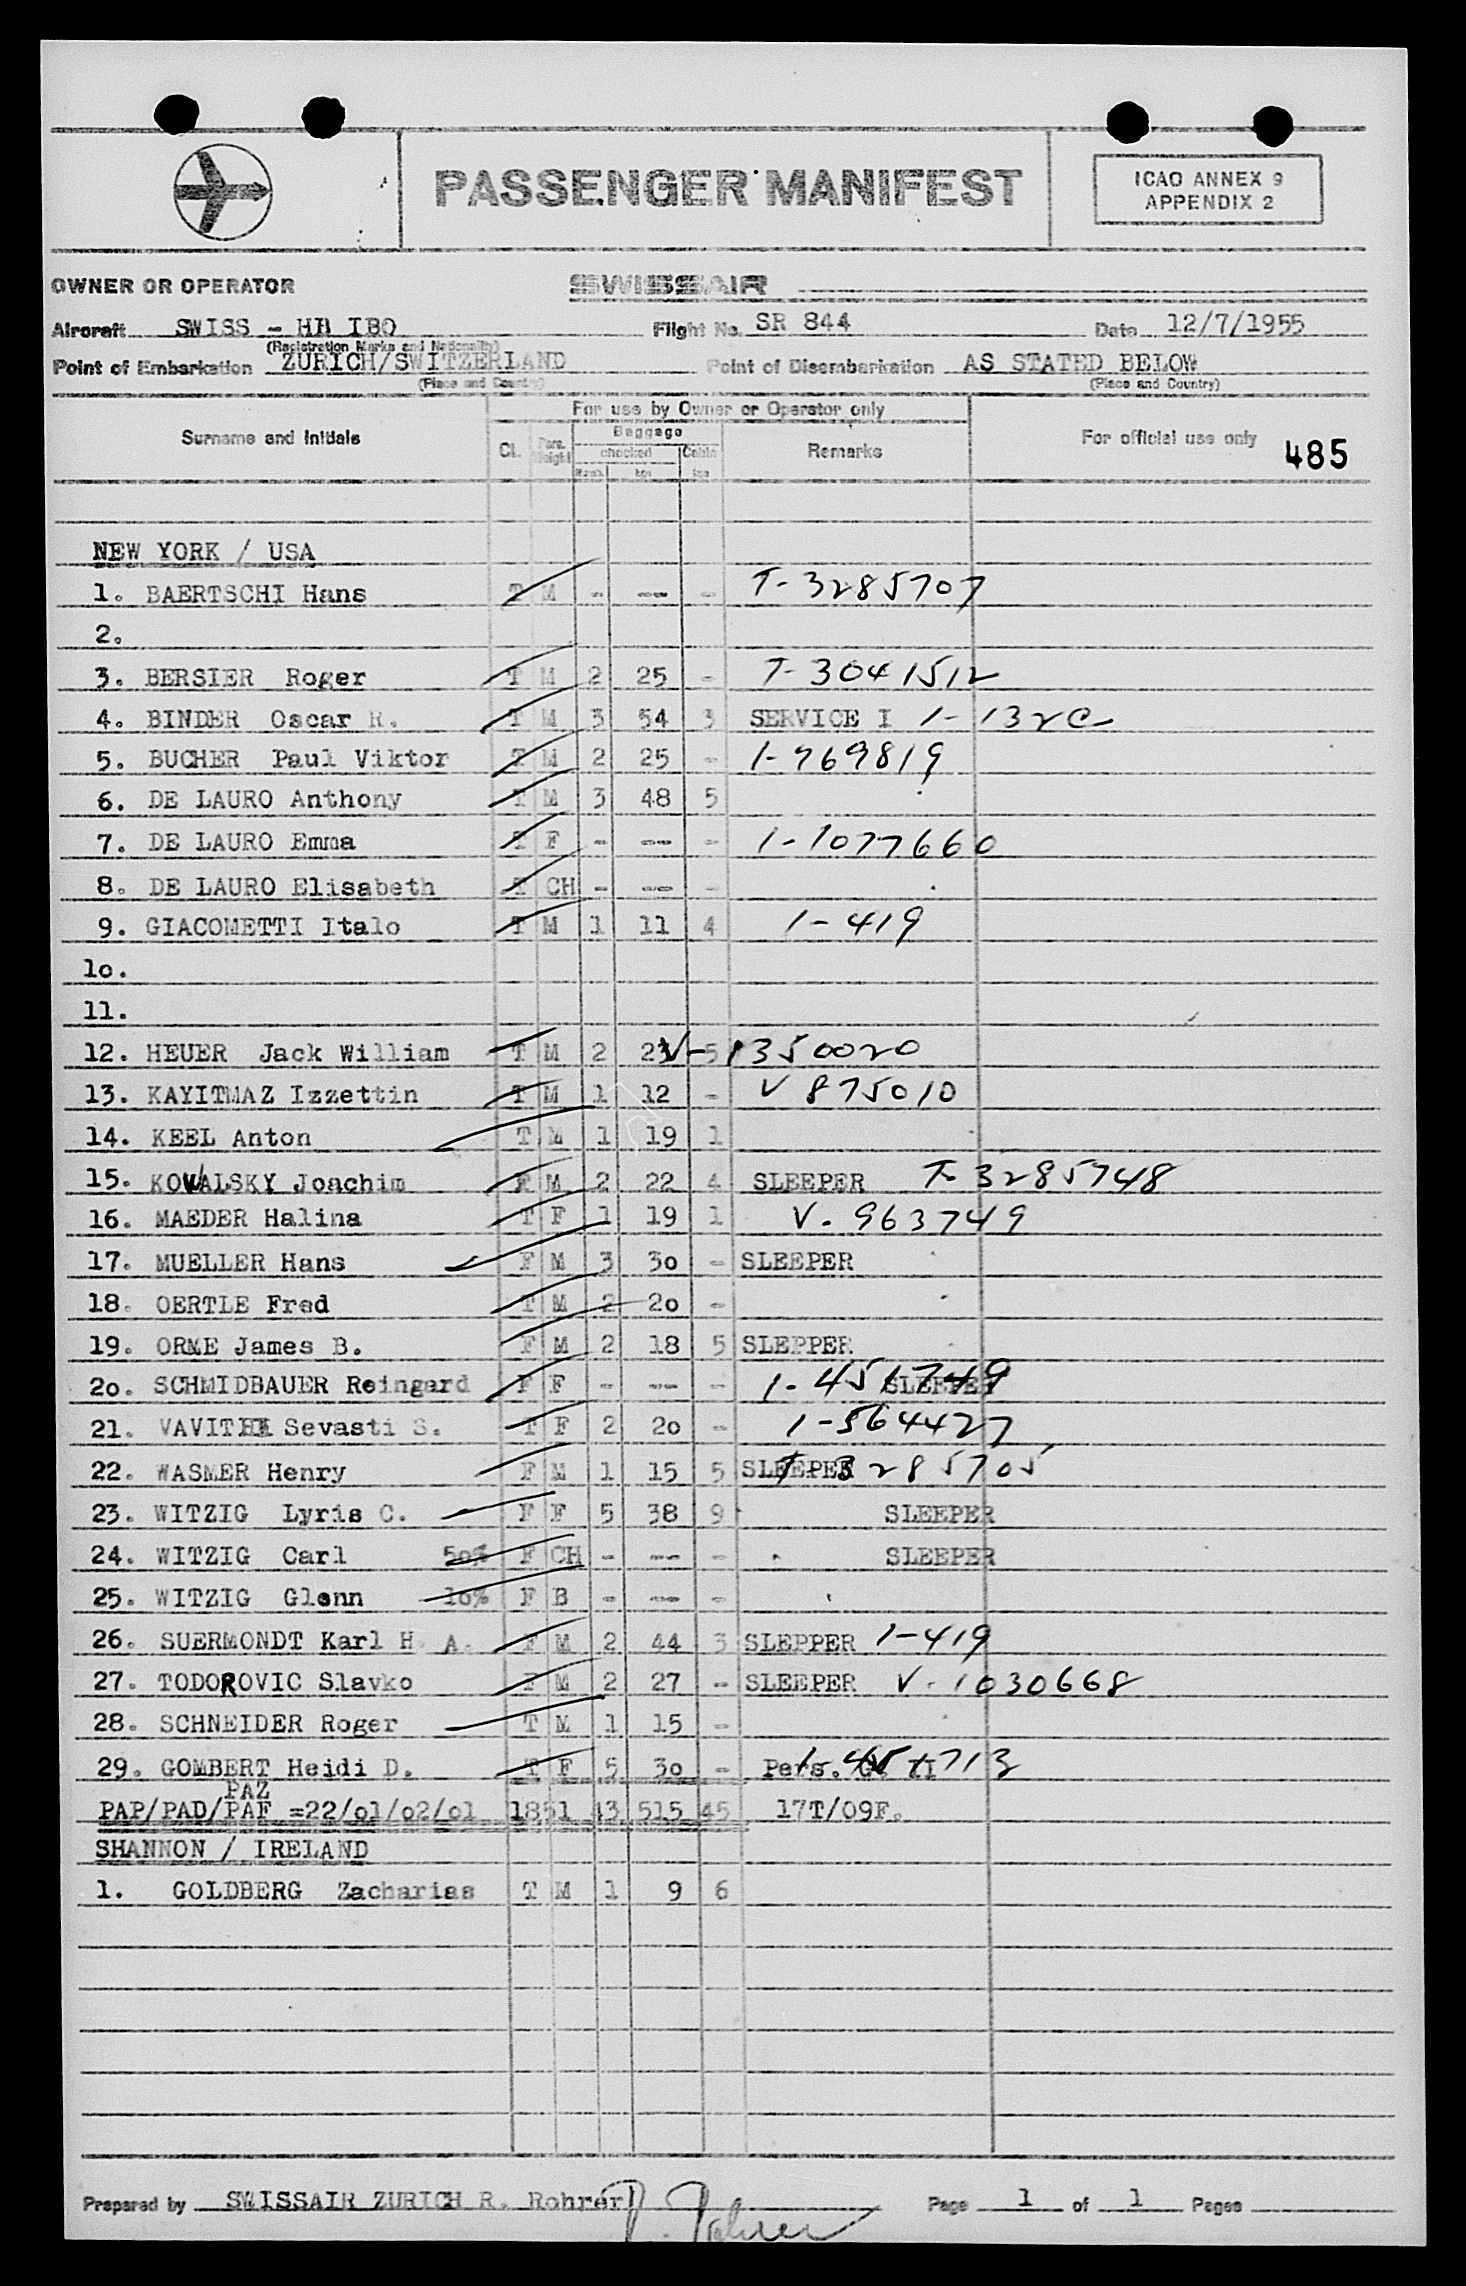 PASSENGER MANIFEST
ICAO ANNEX 9
APPENDIX 2
OWNER OR OPERATOR SWISSAIR
Aircraft SWISS - HB IBO Flight No. SR 844 Date 12/7/1955
(Registration Marks and Nationality)
Point of Embarkation ZURICH/SWITZERLAND Point of Disembarkation AS STATED BELOW
(Place and Country) (Place and Country)
For use by Owner or Operator only
Surname and Initials Cl. Baggage Remarks For official use only 485
checked Cabin
kgs kgs
NEW YORK / USA
1. BAERTSCHI Hans T M - -- - T-3285707
2.
3. BERSIER Roger T M 2 25 - T-3041512
4. BINDER Oscar R. T M 3 54 3 SERVICE I 1-132C
5. BUCHER Paul Viktor T M 2 25 - 1-769819
6. DE LAURO Anthony T M 3 48 5
7. DE LAURO Emma T F - -- - 1-1077660
8. DE LAURO Elisabeth T CH - -- -
9. GIACOMETTI Italo T M 1 11 4 1-419
1o.
11.
12. HEUER Jack William T M 2 23 5 V-1350020
13. KAYITMAZ Izzettin T M 1 12 - V 875010
14. KEEL Anton T M 1 19 1
15. KOWALSKY Joachim F M 2 22 4 SLEEPER T-3285748
16. MAEDER Halina T F 1 19 1 V. 963749
17. MUELLER Hans F M 3 3o - SLEEPER
18. OERTLE Fred T M 2 2o -
19. ORME James B. F M 2 18 5 SLEPPER
2o. SCHMIDBAUER Reingard F F - -- - 1-451749 SLEEPER
21. VAVITHE Sevasti S. T F 2 2o - 1-564427
22. WASMER Henry F M 1 15 5 SLEEPER T-3285705
23. WITZIG Lyris C. F F 5 38 9 SLEEPER
24. WITZIG Carl 5o% F CH - -- - SLEEPER
25. WITZIG Glenn 1o% F B - -- -
26. SUERMONDT Karl H. A. F M 2 44 3 SLEPPER 1-419
27. TODOROVIC Slavko F M 2 27 - SLEEPER V. 1030668
28. SCHNEIDER Roger T M 1 15 -
29. GOMBERT Heidi D. T F 5 3o - Pers. G. II 1-451713
PAZ
PAP/PAD/PAF =22/o1/o2/o1 1851 43 515 45 17T/09F.
SHANNON / IRELAND
1. GOLDBERG Zacharias T M 1 9 6
Prepared by SWISSAIR ZURICH R. Rohrer R. Rohrer Page 1 of 1 Pages